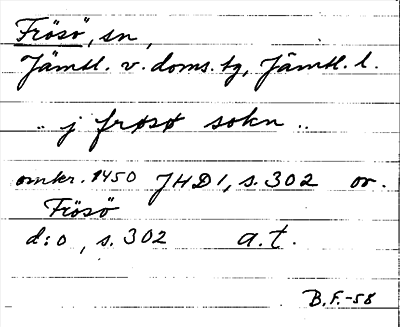 Frösö, sn,
Jämtl. v. doms. tg, Jämtl. l.
.. j frøsø sokn ..
omkr. 1450 JHD 1, s. 302 or.
Frösö
d:o, s. 302 a.t.
B.F.-58